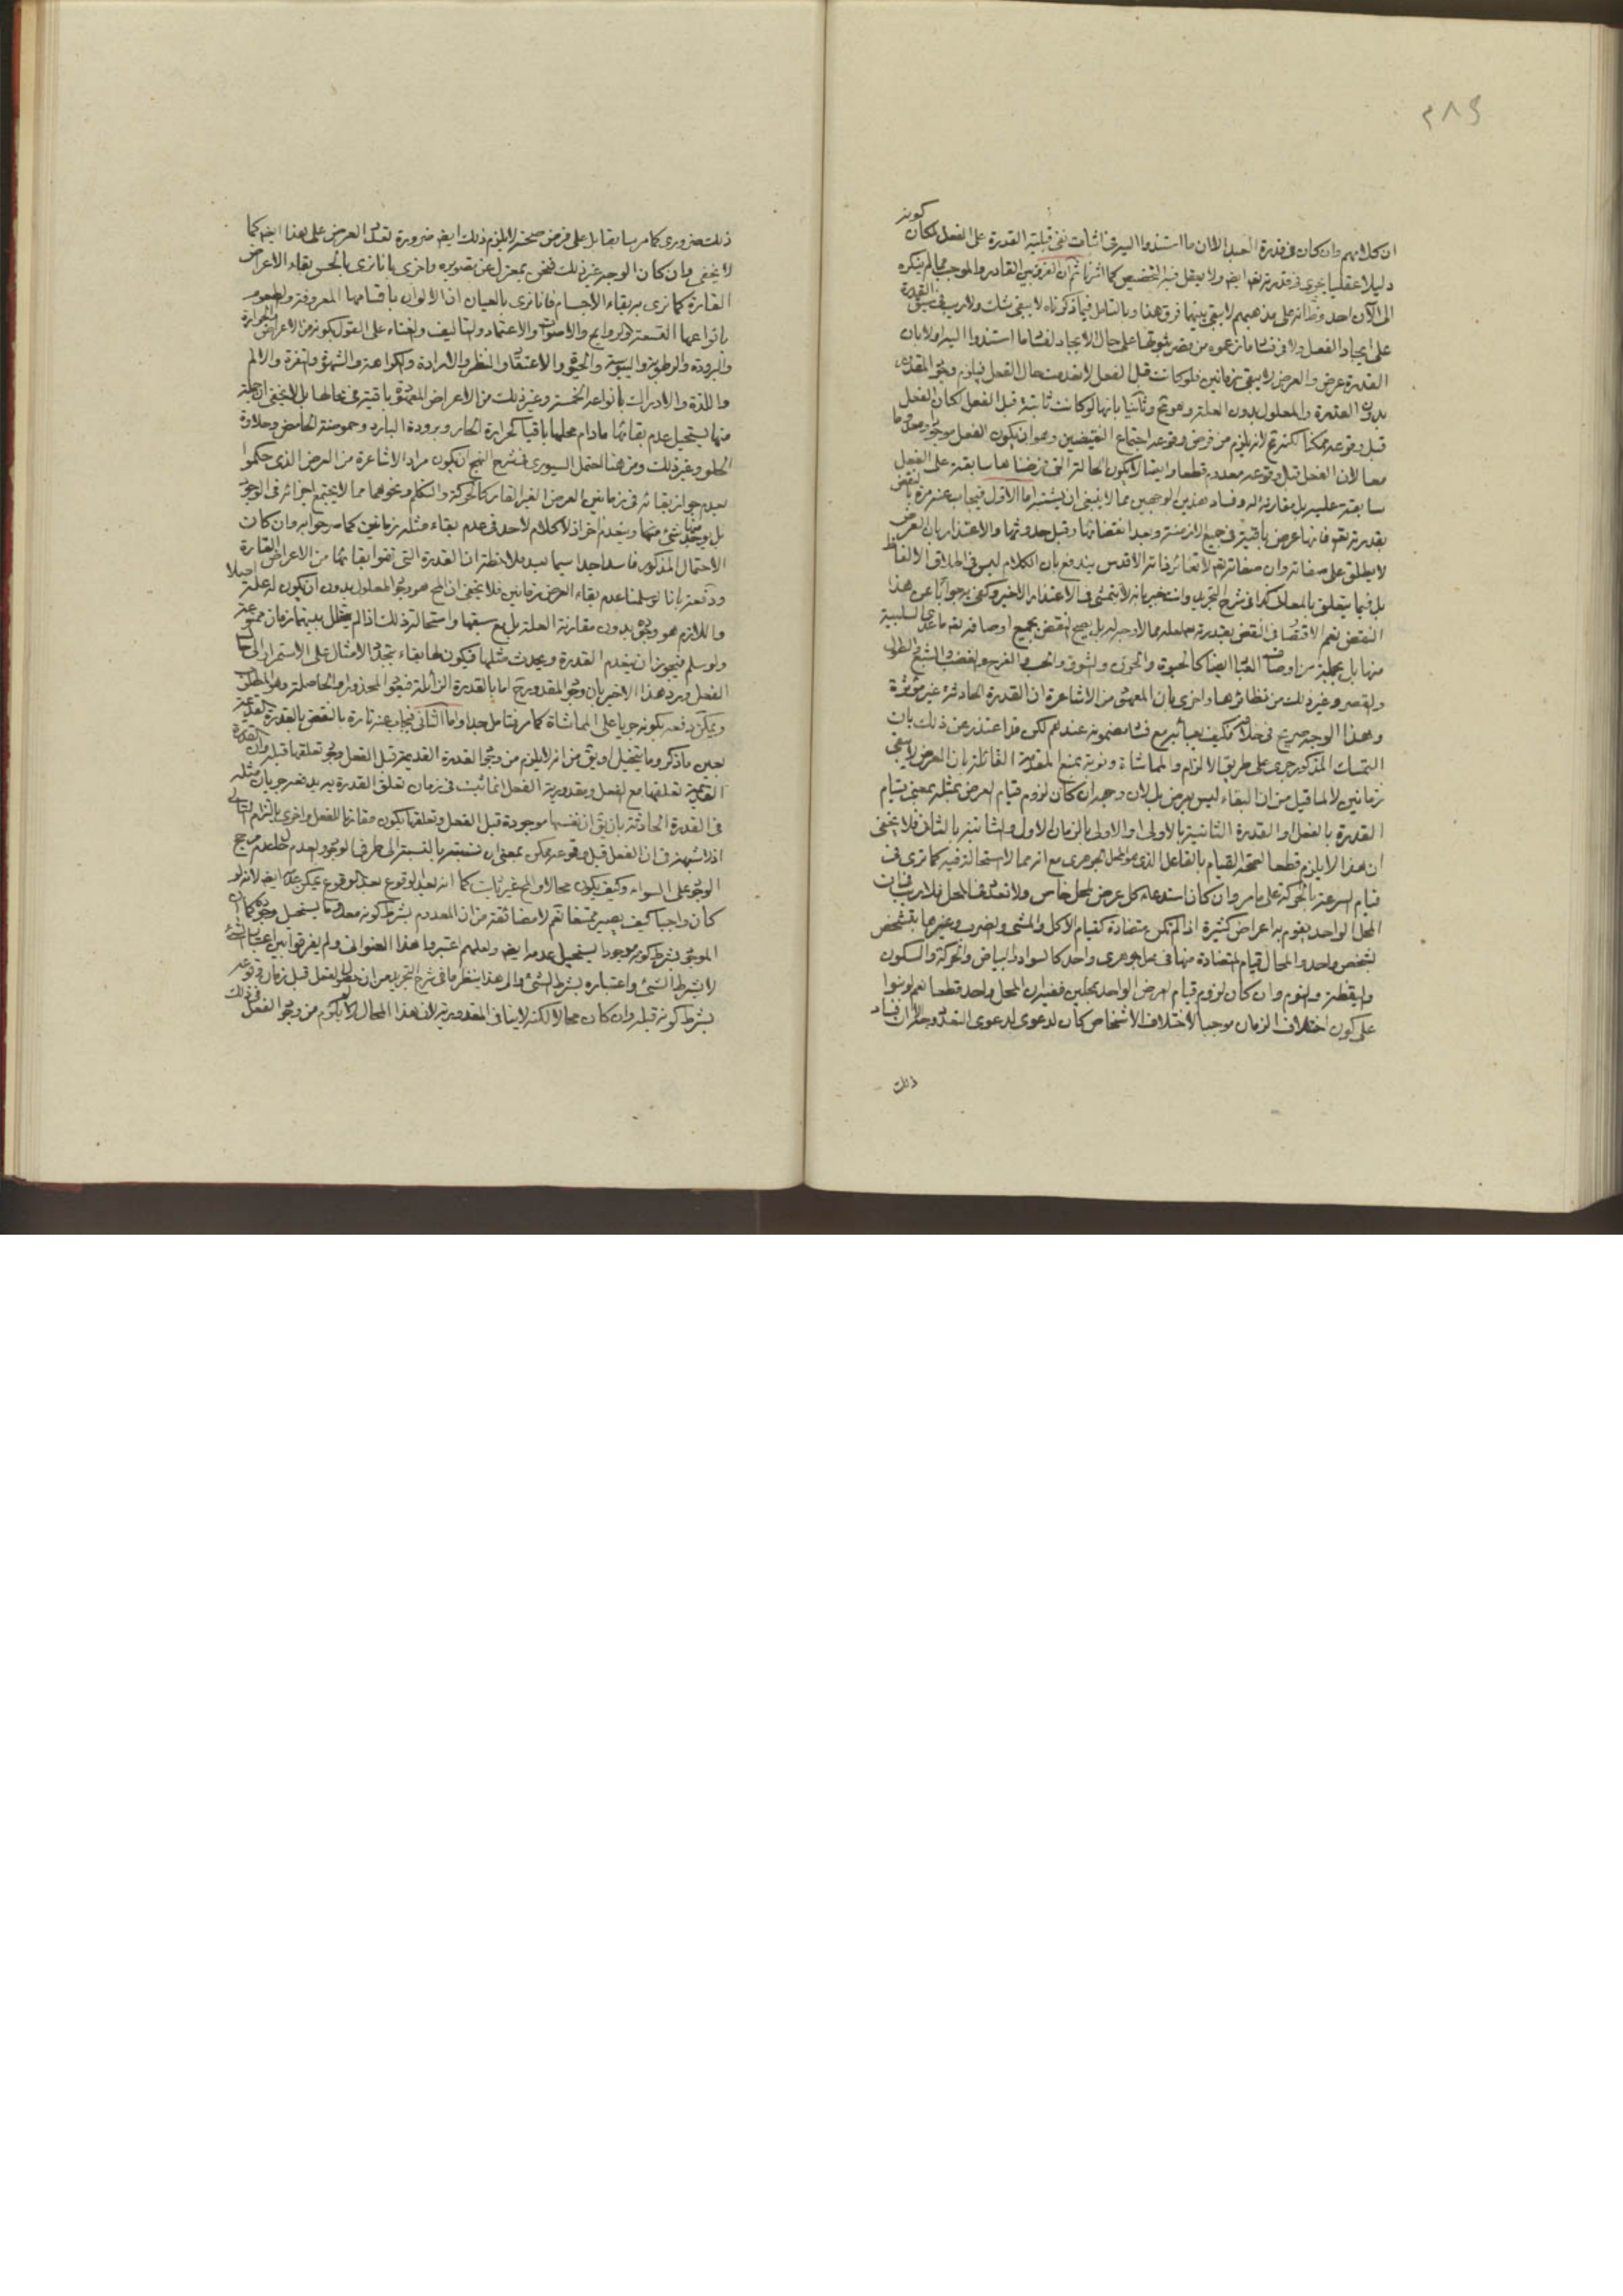 ٢٨٤
كونه
ان كلامهم وان كان في قدرة العبد الا ان ما استندوا اليه في اثبات نفي قبلية القدرة على الفعل لمكان
دليلا عقليا يجري في قدرته تعم ايضه ولا يعقل فيه التخصيص كما اشرنا ثم ان الفرق بين القادر والموجب مما لم ينكره
الى الآن احد وظ انه على مذهبهم لا يبقى بينهما فرق هذا وبالتامل فيما ذكرناه لا يبقى شك ولا ريب في سبق القدرة
على ايجاد الفعل ولا في فساد ما زعموه من قصر ثبوتها على حال الايجاد لفساد ما استندوا اليه اولا بان
القدرة عرض والعرض لا يبقى زمانين فلو كانت قبل الفعل لانعدمت حال الفعل فيلزم وجود المقدور
بدون القدرة والمعلول بدون العلة وهو مح وثانيا بانها لو كانت ثابتة قبل الفعل لكان الفعل
قبل وقوعه ممكنا لكنه مح لانه يلزم من فرض وقوعه اجتماع النقيضين وهو ان يكون الفعل موجودا ومعدوما
معا لان الفعل قبل وقوعه معدوم قطعا وايضا لا يكون الحالة التي فرضناها سابقة على الفعل
سابقة عليه بل مقارنة له وفساد هذين الوجهين مما لا ينبغي ان يشتبه اما الاول فيجاب عنه مرة بالنقض
بقدرته تعم فانها عرض باقية في جميع الازمنة وبعد انقضائها وقبل حدوثها والاعتذار بان العرض
لا يطلق على صفاته وان صفاته تعم لا تغاير ذاته الاقدس يندفع بان الكلام ليس في اطلاق الالفاظ
بل فيما يتعلق بالمعاني كذا في شرح التجريد وانت خبير بانه لا يتمشى في الاعتذار الاخير وكفى به جوابا عن هذا
النقض نعم الاقتصار في النقض بقدرته جل علمه مما لا وجه له بل يصح النقض بجميع اوصافه تعم ما عدى السلبية
منها بل بجملة من اوصاف العباد ايضا كالحيوة والخوف والشوق والحب والفرح والغضب والشبع والطول
والقصر وغير ذلك من نظائرها واخرى بان المعهود من الاشاعرة ان القدرة الحادثة غير مؤثرة
وهذا الوجه صريح في خلافه فكيف يعبأ به مع فساد مضمونه عندهم لكن قد اعتذر عن ذلك بان
التمسك المذكور جرى على طريق الالزام والمماشاة وثوبته بمنع المقدمة القائلة بان العرض لا يبقى
زمانين لا لما قيل من ان البقاء ليس بعرض بل لان وجه ان كان لزوم قيام العرض بمثله بمعنى قيام
القدرة بالفعل او القدرة الثانية بالاولى او الاولى بالزمان الاول والثانية بالثاني فلا يخفى
ان هذا لا يلزم قطعا لصحة القيام بالفاعل الذي هو المحل الجوهري مع انه مما لا استحالة فيه كما ترى في
قيام السرعة بالحركة على ما مر وان كان استدعاء كل عرض لمحل خاص ولا تعدد في المحل فلا ريب في ان
المحل الواحد يقوم به اعراض كثيرة اذا لم تكن متضادة كقيام الاكل والمشي والضرب وغيرها بشخص
شخص واحد والمحال قيام المتضادة منها في محل جوهري واحد كالسواد والبياض والحركة والسكون
واليقظة والنوم وان كان لزوم قيام العرض الواحد بمحلين ففيه ان المحل واحد قطعا نعم لو بنوا
على كون اختلاف الزمان موجبا لاختلاف الاشخاص كان لدعوى التعدد وجه الا ان فساد
ذلك
ذلك ضروري كما مر سابقا بل على فرض صحته لا يلزم ذلك ايضه ضرورة تعدد العرض على هذا ايضه كما
لا يخفى وان كان الوجه غير ذلك فنحن بمعزل عن تصويره واخرى بانا نرى بالحس بقاء الاعراض
القارة كما نرى به بقاء الاجسام فانا نرى بالعيان ان الالوان باقسامها المعروفة والطعوم
بانواعها التسعة والروايح والاصوات والاعتماد والتأليف والفناء على القول بكونه من الاعراض والحرارة
والبرودة والرطوبة واليبوسة والحيوة والاعتقاد والنظر والارادة والكراهة والشهوة والنفرة والالم
واللذة والادراك بانواعه الخمسة وغير ذلك من الاعراض المعهودة باقية في محالها بل لا يخفى ان جملة
منها يستحيل عدم بقائها ما دام محلها باقيا كحرارة الحار وبرودة البارد وحموضة الحامض وحلاوة
الحلو وغير ذلك ومن هنا احتمل السيوري في شرح النهج ان يكون مراد الاشاعرة من العرض الذي حكموا
بعدم جواز بقائه في زمانين العرض الغير القار كالحركة والتكلم ونحوهما مما لا يجتمع اجزائه في الوجود
بل يوجد شئ منها وينعدم اخر اذ لا كلام لاحد في عدم بقاء مثله زمانين كما صرحوا به وان كان
الاحتمال المذكور فاسدا جدا سيما بعد ملاحظة ان القدرة التي نفوا بقائها من الاعراض القارة
ودفعة بانا لو سلمنا عدم بقاء العرض زمانين فلا يخفى ان المح هو وجود المعلول بدون ان يكون له علة اصلا
واللازم هو وجوده بدون مقارنة العلة بل مع سبقها واستحالة ذلك اذا لم يتخلل بينهما زمان ممنوعة
ولو سلم فيجوز ان ينعدم القدرة ويحدث مثلها فيكون لها بقاء بتجدد الامثال على الاستمرار الى حال
الفعل ويرد هذا الاخير بان وجود المقدور ح اما بالقدرة الزائلة فيعود المحذور او الحاصلة وهو المطلوب
ويمكن دفعه بكونه جريا على المماشاة كما مر فتامل جدا واما الثاني فيجاب عنه تارة بالنقض بالقدرة القديمة
بعين ما ذكر وما يتخيل او يق من انه لا يلزم من وجود القدرة القديمة قبل الفعل وجود تعلقها قبله وان القدرة
القديمة تعلقها مع الفعل ومقدورية الفعل انما تثبت في زمان تعلق القدرة به يدفعه جريان مثله
في القدرة الحادثة بان يق ان نفسها موجودة قبل الفعل وتعلقها يكون مقارنا للفعل واخرى بالتزام الثاني
اذ لا شبهة في ان الفعل قبل وقوعه ممكن بمعنى ان نسبته بالنسبة الى طرفي الوجود والعدم لعدم مرجح
الوجود على السواء وكيف يكون محالا والمح غير ثابت كما انه بعد الوقوع يمكن عدمه ايضه لانه لو
كان واجبا كيف يصير ممتنعا نعم لا مضائقة من ان المعدوم بشرط كونه معدوما يستحيل وجوده كما ان
الموجود بشرط كونه موجودا يستحيل عدمه ايضه ولعلهم اعتبروا هذا العنوان ولم يفرقوا بين اعتبار الشئ
لا بشرط الشئ واعتباره بشرط الشئ والى هذا ينظر ما في شرح التجريد من ان حصول الفعل قبل زمان وقوعه
بشرط كونه قبله وان كان محالا لكنه لا ينافي المقدورية لان هذا المحال لم يلزم من وجود الفعل في ذلك